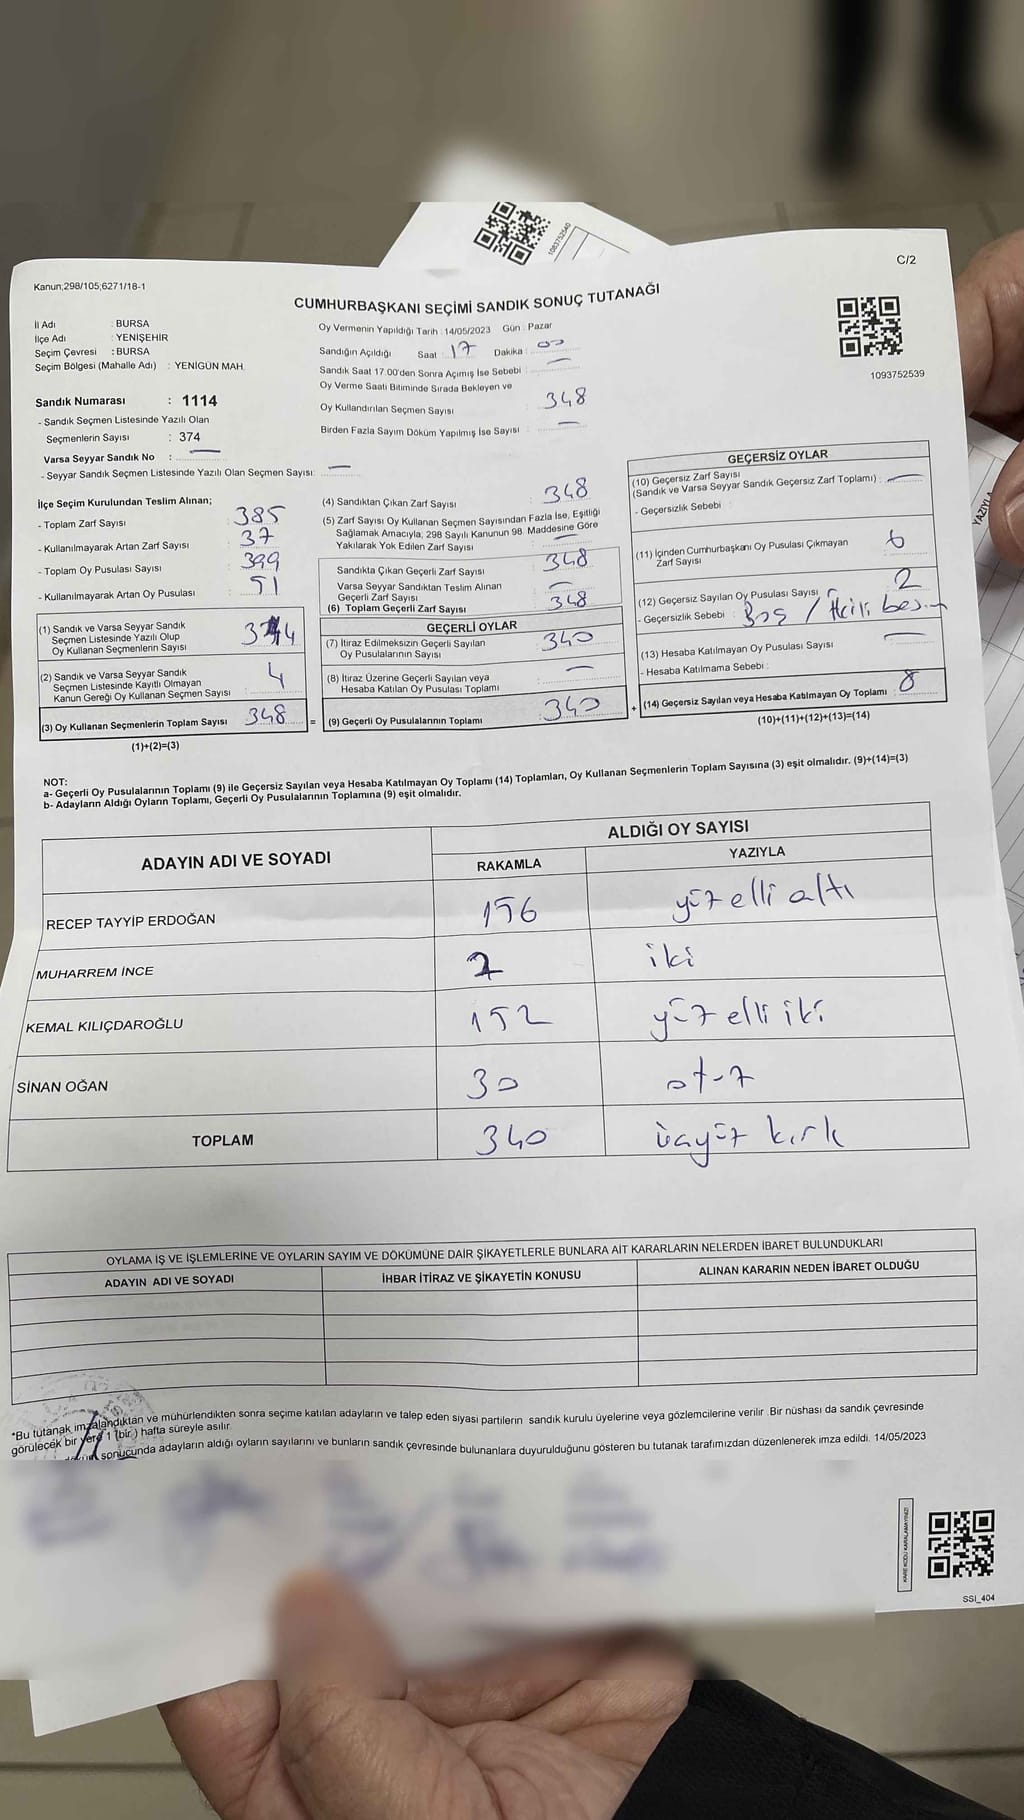 1083752540
C/2
Kanun;298/105;6271/18-1
CUMHURBAŞKANI SEÇİMİ SANDIK SONUÇ TUTANAĞI
1093752539
İl Adı : BURSA
İlçe Adı : YENİŞEHİR
Seçim Çevresi : BURSA
Seçim Bölgesi (Mahalle Adı) : YENİGÜN MAH.
Sandık Numarası : 1114
- Sandık Seçmen Listesinde Yazılı Olan
Seçmenlerin Sayısı : 374
Varsa Seyyar Sandık No : —
- Seyyar Sandık Seçmen Listesinde Yazılı Olan Seçmen Sayısı: —
Oy Vermenin Yapıldığı Tarih : 14/05/2023 Gün : Pazar
Sandığın Açıldığı Saat : 17 Dakika : 00
Sandık Saat 17.00'den Sonra Açımış İse Sebebi : —
Oy Verme Saati Bitiminde Sırada Bekleyen ve
Oy Kullandırılan Seçmen Sayısı : 348
Birden Fazla Sayım Döküm Yapılmış İse Sayısı : —
İlçe Seçim Kurulundan Teslim Alınan;
- Toplam Zarf Sayısı : 385
- Kullanılmayarak Artan Zarf Sayısı : 37
- Toplam Oy Pusulası Sayısı : 399
- Kullanılmayarak Artan Oy Pusulası : 51
(1) Sandık ve Varsa Seyyar Sandık
Seçmen Listesinde Yazılı Olup
Oy Kullanan Seçmenlerin Sayısı 344
(2) Sandık ve Varsa Seyyar Sandık
Seçmen Listesinde Kayıtlı Olmayan
Kanun Gereği Oy Kullanan Seçmen Sayısı : 4
(3) Oy Kullanan Seçmenlerin Toplam Sayısı 348
(1)+(2)=(3)
=
(4) Sandıktan Çıkan Zarf Sayısı : 348
(5) Zarf Sayısı Oy Kullanan Seçmen Sayısından Fazla İse, Eşitliği
Sağlamak Amacıyla, 298 Sayılı Kanunun 98. Maddesine Göre
Yakılarak Yok Edilen Zarf Sayısı —
Sandıkta Çıkan Geçerli Zarf Sayısı : 348
Varsa Seyyar Sandıktan Teslim Alınan
Geçerli Zarf Sayısı : —
(6) Toplam Geçerli Zarf Sayısı : 348
GEÇERLİ OYLAR
(7) İtiraz Edilmeksizin Geçerli Sayılan
Oy Pusulalarının Sayısı : 340
(8) İtiraz Üzerine Geçerli Sayılan veya
Hesaba Katılan Oy Pusulası Toplamı : —
(9) Geçerli Oy Pusulalarının Toplamı : 340
+
GEÇERSİZ OYLAR
(10) Geçersiz Zarf Sayısı
(Sandık ve Varsa Seyyar Sandık Geçersiz Zarf Toplamı) : —
- Geçersizlik Sebebi :
(11) İçinden Cumhurbaşkanı Oy Pusulası Çıkmayan
Zarf Sayısı : 6
(12) Geçersiz Sayılan Oy Pusulası Sayısı : 2
- Geçersizlik Sebebi : Boş / İkili basım
(13) Hesaba Katılmayan Oy Pusulası Sayısı : —
- Hesaba Katılmama Sebebi :
(14) Geçersiz Sayılan veya Hesaba Katılmayan Oy Toplamı : 8
(10)+(11)+(12)+(13)=(14)
NOT:
a- Geçerli Oy Pusulalarının Toplamı (9) ile Geçersiz Sayılan veya Hesaba Katılmayan Oy Toplamı (14) Toplamları, Oy Kullanan Seçmenlerin Toplam Sayısına (3) eşit olmalıdır. (9)+(14)=(3)
b- Adayların Aldığı Oyların Toplamı, Geçerli Oy Pusulalarının Toplamına (9) eşit olmalıdır.
ADAYIN ADI VE SOYADI
ALDIĞI OY SAYISI
RAKAMLA YAZIYLA
RECEP TAYYİP ERDOĞAN 156 yüz elli altı
MUHARREM İNCE 2 iki
KEMAL KILIÇDAROĞLU 152 yüz elli iki
SİNAN OĞAN 30 otuz
TOPLAM 340 üçyüz kırk
OYLAMA İŞ VE İŞLEMLERİNE VE OYLARIN SAYIM VE DÖKÜMÜNE DAİR ŞİKAYETLERLE BUNLARA AİT KARARLARIN NELERDEN İBARET BULUNDUKLARI
ADAYIN ADI VE SOYADI İHBAR İTİRAZ VE ŞİKAYETİN KONUSU ALINAN KARARIN NEDEN İBARET OLDUĞU
*Bu tutanak imzalandıktan ve mühürlendikten sonra seçime katılan adayların ve talep eden siyasi partilerin sandık kurulu üyelerine veya gözlemcilerine verilir. Bir nüshası da sandık çevresinde
görülecek bir yere 1 (bir) hafta süreyle asılır.
sonucunda adayların aldığı oyların sayılarını ve bunların sandık çevresinde bulunanlara duyurulduğunu gösteren bu tutanak tarafımızdan düzenlenerek imza edildi. 14/05/2023
KARE KODU KARALAMAYINIZ!
SSI_404
YAZIYLA